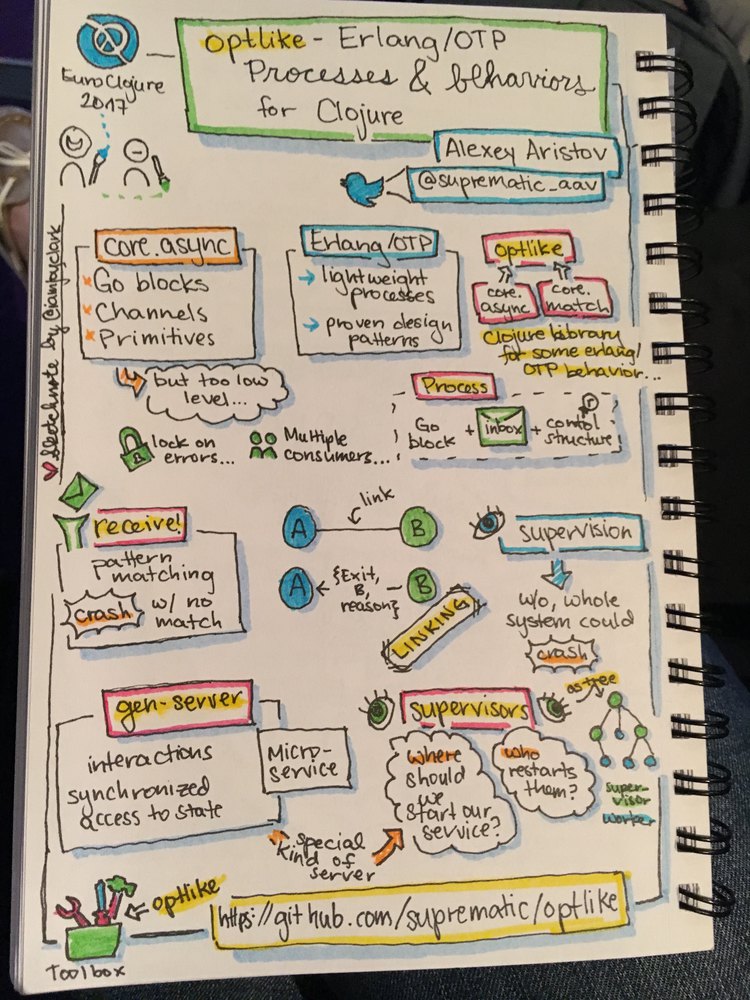 optlike - Erlang/OTP
Processes & behaviors
for Clojure
EuroClojure
2017
Alexey Aristov
@suprematic_aav
Sketchnote by @iamjayclark
core.async
Go blocks
Channels
Primitives
but too low
level...
Erlang/OTP
lightweight
processes
proven design
patterns
optlike
core.
async
core.
match
Clojure library
for some erlang/
OTP behavior...
lock on
errors...
Multiple
consumers...
Process
Go
block
+
inbox
+
control
structure
receive!
pattern
matching
crash w/ no
match
link
A
B
A
{Exit,
B,
reason}
B
LINKING
supervision
w/o, whole
system could
crash
gen-server
interactions
synchronized
access to state
Micro-
service
supervisors
where
should
we
start our
service?
who
restarts
them?
as tree
super-
visor
worker
special
kind of
server
optlike
Toolbox
https://github.com/suprematic/optlike